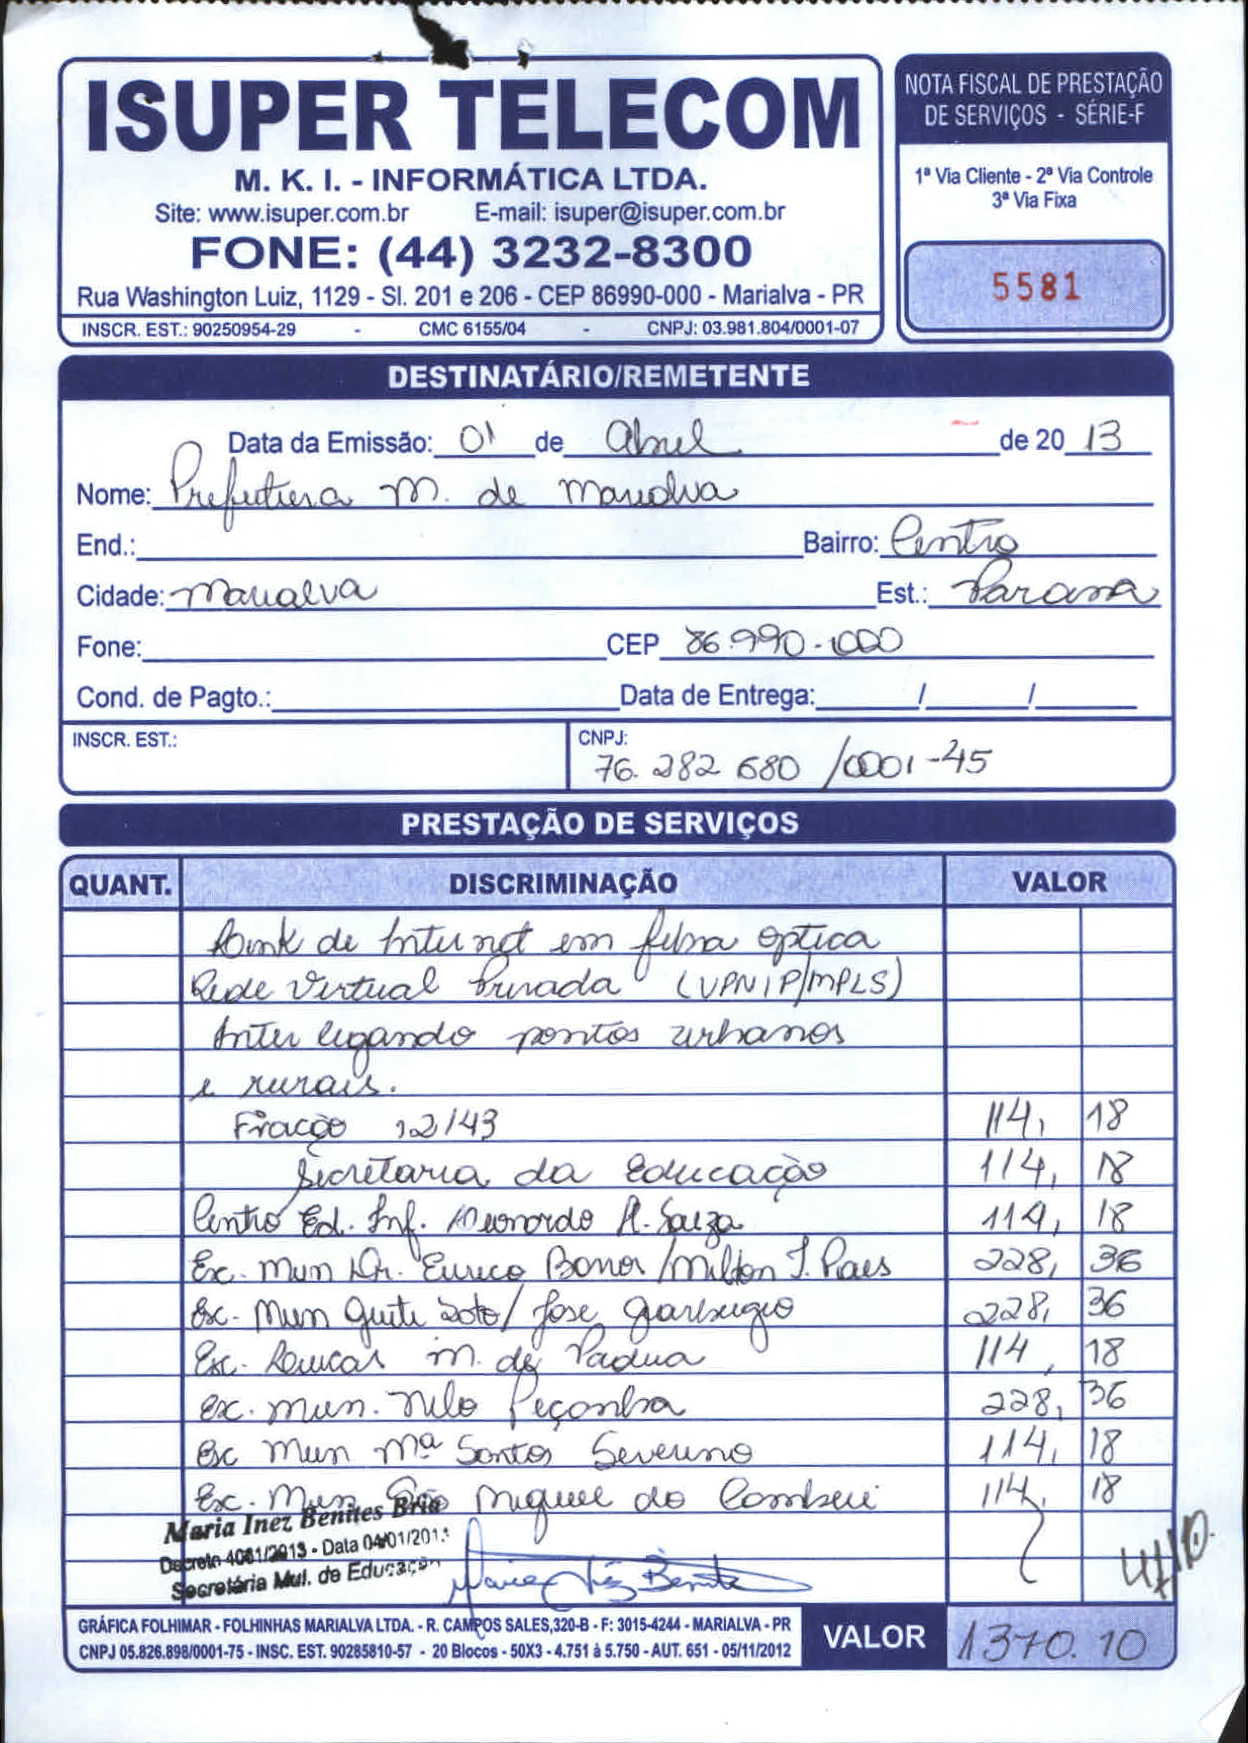 ISUPER TELECOM
M. K. I. - INFORMÁTICA LTDA.
Site: www.isuper.com.br E-mail: isuper@isuper.com.br
FONE: (44) 3232-8300
Rua Washington Luiz, 1129 - Sl. 201 e 206 - CEP 86990-000 - Marialva - PR
INSCR. EST.: 90250954-29 - CMC 6155/04 - CNPJ: 03.981.804/0001-07
NOTA FISCAL DE PRESTAÇÃO
DE SERVIÇOS - SÉRIE-F
1ª Via Cliente - 2ª Via Controle
3ª Via Fixa
5581
DESTINATÁRIO/REMETENTE
Data da Emissão: 01 de Abril de 2013
Nome: Prefeitura M. de Marialva
End.: Bairro: Centro
Cidade: Marialva Est.: Parana
Fone: CEP 86.990-000
Cond. de Pagto.: Data de Entrega: / /
INSCR. EST.: CNPJ:
76.282 680 /0001-45
PRESTAÇÃO DE SERVIÇOS
QUANT. DISCRIMINAÇÃO VALOR
Link de Internet em fibra optica
Rede Virtual Privada (VPNIP/MPLS)
Inter ligando pontos urbanos
e rurais.
Fração 12/43 114, 18
Secretaria da Educação 114, 18
Centro Ed. Inf. Leonardo A. Souza 114, 18
Esc. Mun Dr. Eurico Milton J. Paes 228, 36
Esc. Mun Guiti Soto/ Jose Garbugio 228, 36
Esc. Lucas M. de Padua 114, 18
Esc. Mun. Nilo Peçanha 228, 36
Esc Mun Mª Santos Severino 114, 18
Esc. Mun São Miguel do Cambui 114, 18
Maria Inez Benites Bria
Decreto 4081/2013 - Data 04/01/2013
Secretária Mul. de Educação
GRÁFICA FOLHIMAR - FOLHINHAS MARIALVA LTDA. - R. CAMPOS SALES,320-B - F: 3015-4244 - MARIALVA - PR
CNPJ 05.826.898/0001-75 - INSC. EST. 90285810-57 - 20 Blocos - 50X3 - 4.751 à 5.750 - AUT. 651 - 05/11/2012
VALOR 1370.10